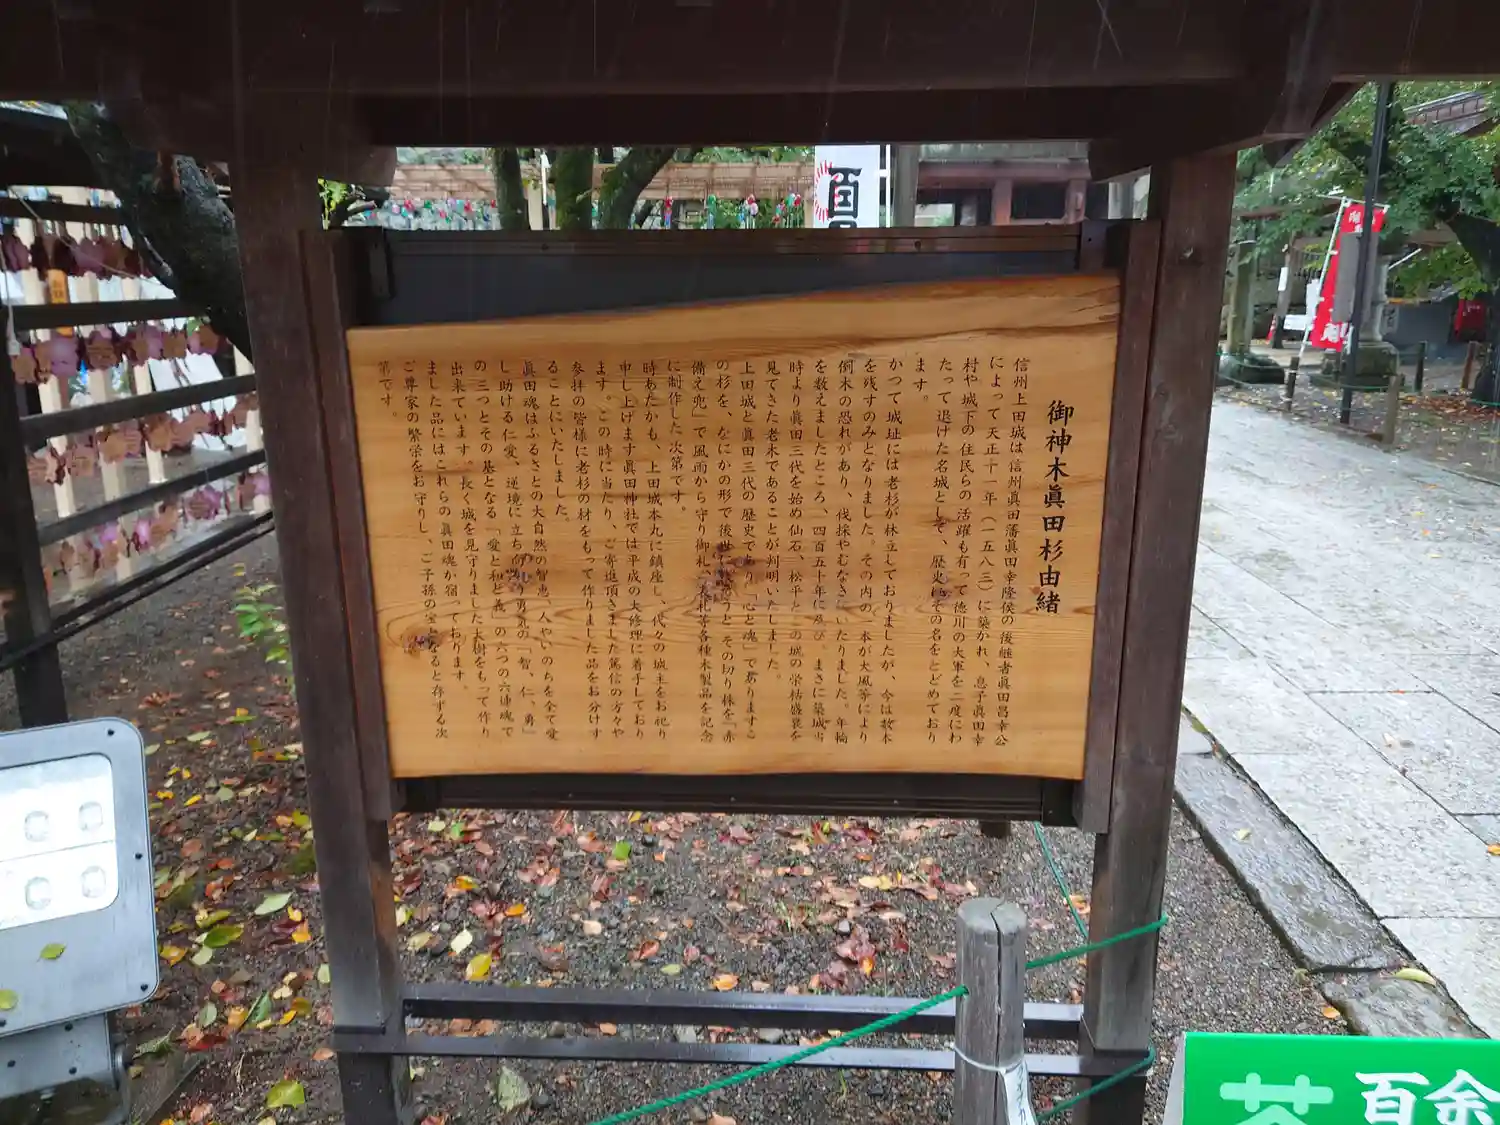 御神木眞田杉由緒
信州上田城は信州眞田藩眞田幸隆侯の後継者眞田昌幸公
によって天正十一年（一五八三）に築かれ、息子眞田幸
村や城下の住民らの活躍も有って徳川の大軍を二度にわ
たって退けた名城として、歴史にその名をとどめており
ます。
かつて城址には老杉が林立しておりましたが、今は数本
を残すのみとなりました。その内の一本が大風等により
倒木の恐れがあり、伐採やむなきにいたりました。年輪
を数えましたところ、四百五十年に及び、まさに築城当
時より眞田三代を始め仙石、松平とこの城の栄枯盛衰を
見てきた老木であることが判明いたしました。
上田城と眞田三代の歴史であり「心と魂」で有りますこ
の杉を、なにかの形で後世に とその切り株を「赤
備え兜」で風雨から守り御札、 札等各種木製品を記念
に制作した次第です。
時あたかも、上田城本丸に鎮座し、代々の城主をお祀り
申し上げます眞田神社では平成の大修理に着手しており
ます。この時に当たり、ご寄進頂きました篤信の方々や
参拝の皆様に老杉の材をもって作りました品をお分けす
ることにいたしました。
眞田魂はふるさとの大自然の智恵、人やいのちを全て愛
し助ける仁愛、逆境に立ち向かう勇気の「智、仁、勇」
の三つとその基となる「愛と和と義」の六つの六連魂で
出来ています。長く城を見守りました大樹をもって作り
ました品にはこれらの眞田魂が宿っております。
ご尊家の繁栄をお守りし、ご子孫の宝となると存ずる次
第です。
百余